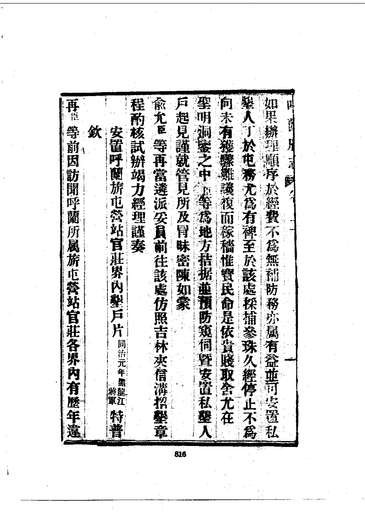 如果辦理順序於經費不爲無補防務亦属有益並可安置私
墾人丁於屯務尤爲有裨至於該處採捕參珠久經停止不爲
向未有獲驟難議復而稼穡惟寳民命是依貴賤取舍尤在
聖明洞鑒之中臣等爲地方拮据並預防窺伺曁安置私墾人
戸起見謹就管見所及冒昧密陳如蒙
俞允臣等再當遴派委員前往該處仿照吉林夾信溝招墾章
程酌核試辦竭力經理謹奏
安置呼蘭旂屯營站官莊界内墾戸片 同治元年黑龍江將軍 特普
欽
再臣等前因訪聞呼蘭所属旂屯營站官莊各界内有歷年遠
816